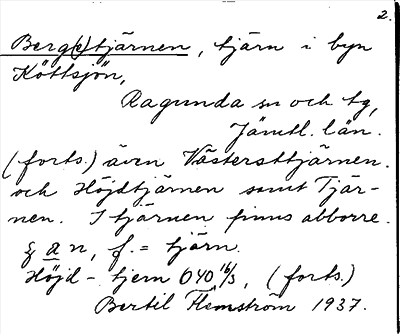 2.
Berg(s)tjärnen, tjärn i byn
Köttsjön,
Ragunda sn och tg,
Jämtl. län.
(forts.) även Västersttjärnen
och Höjdtjärnen samt Tjär-
nen. I tjärnen finns abborre.
a n, f. = tjärn.
Höjd- tjern 040 16/3, (forts.)
Bertil Flemström 1937.